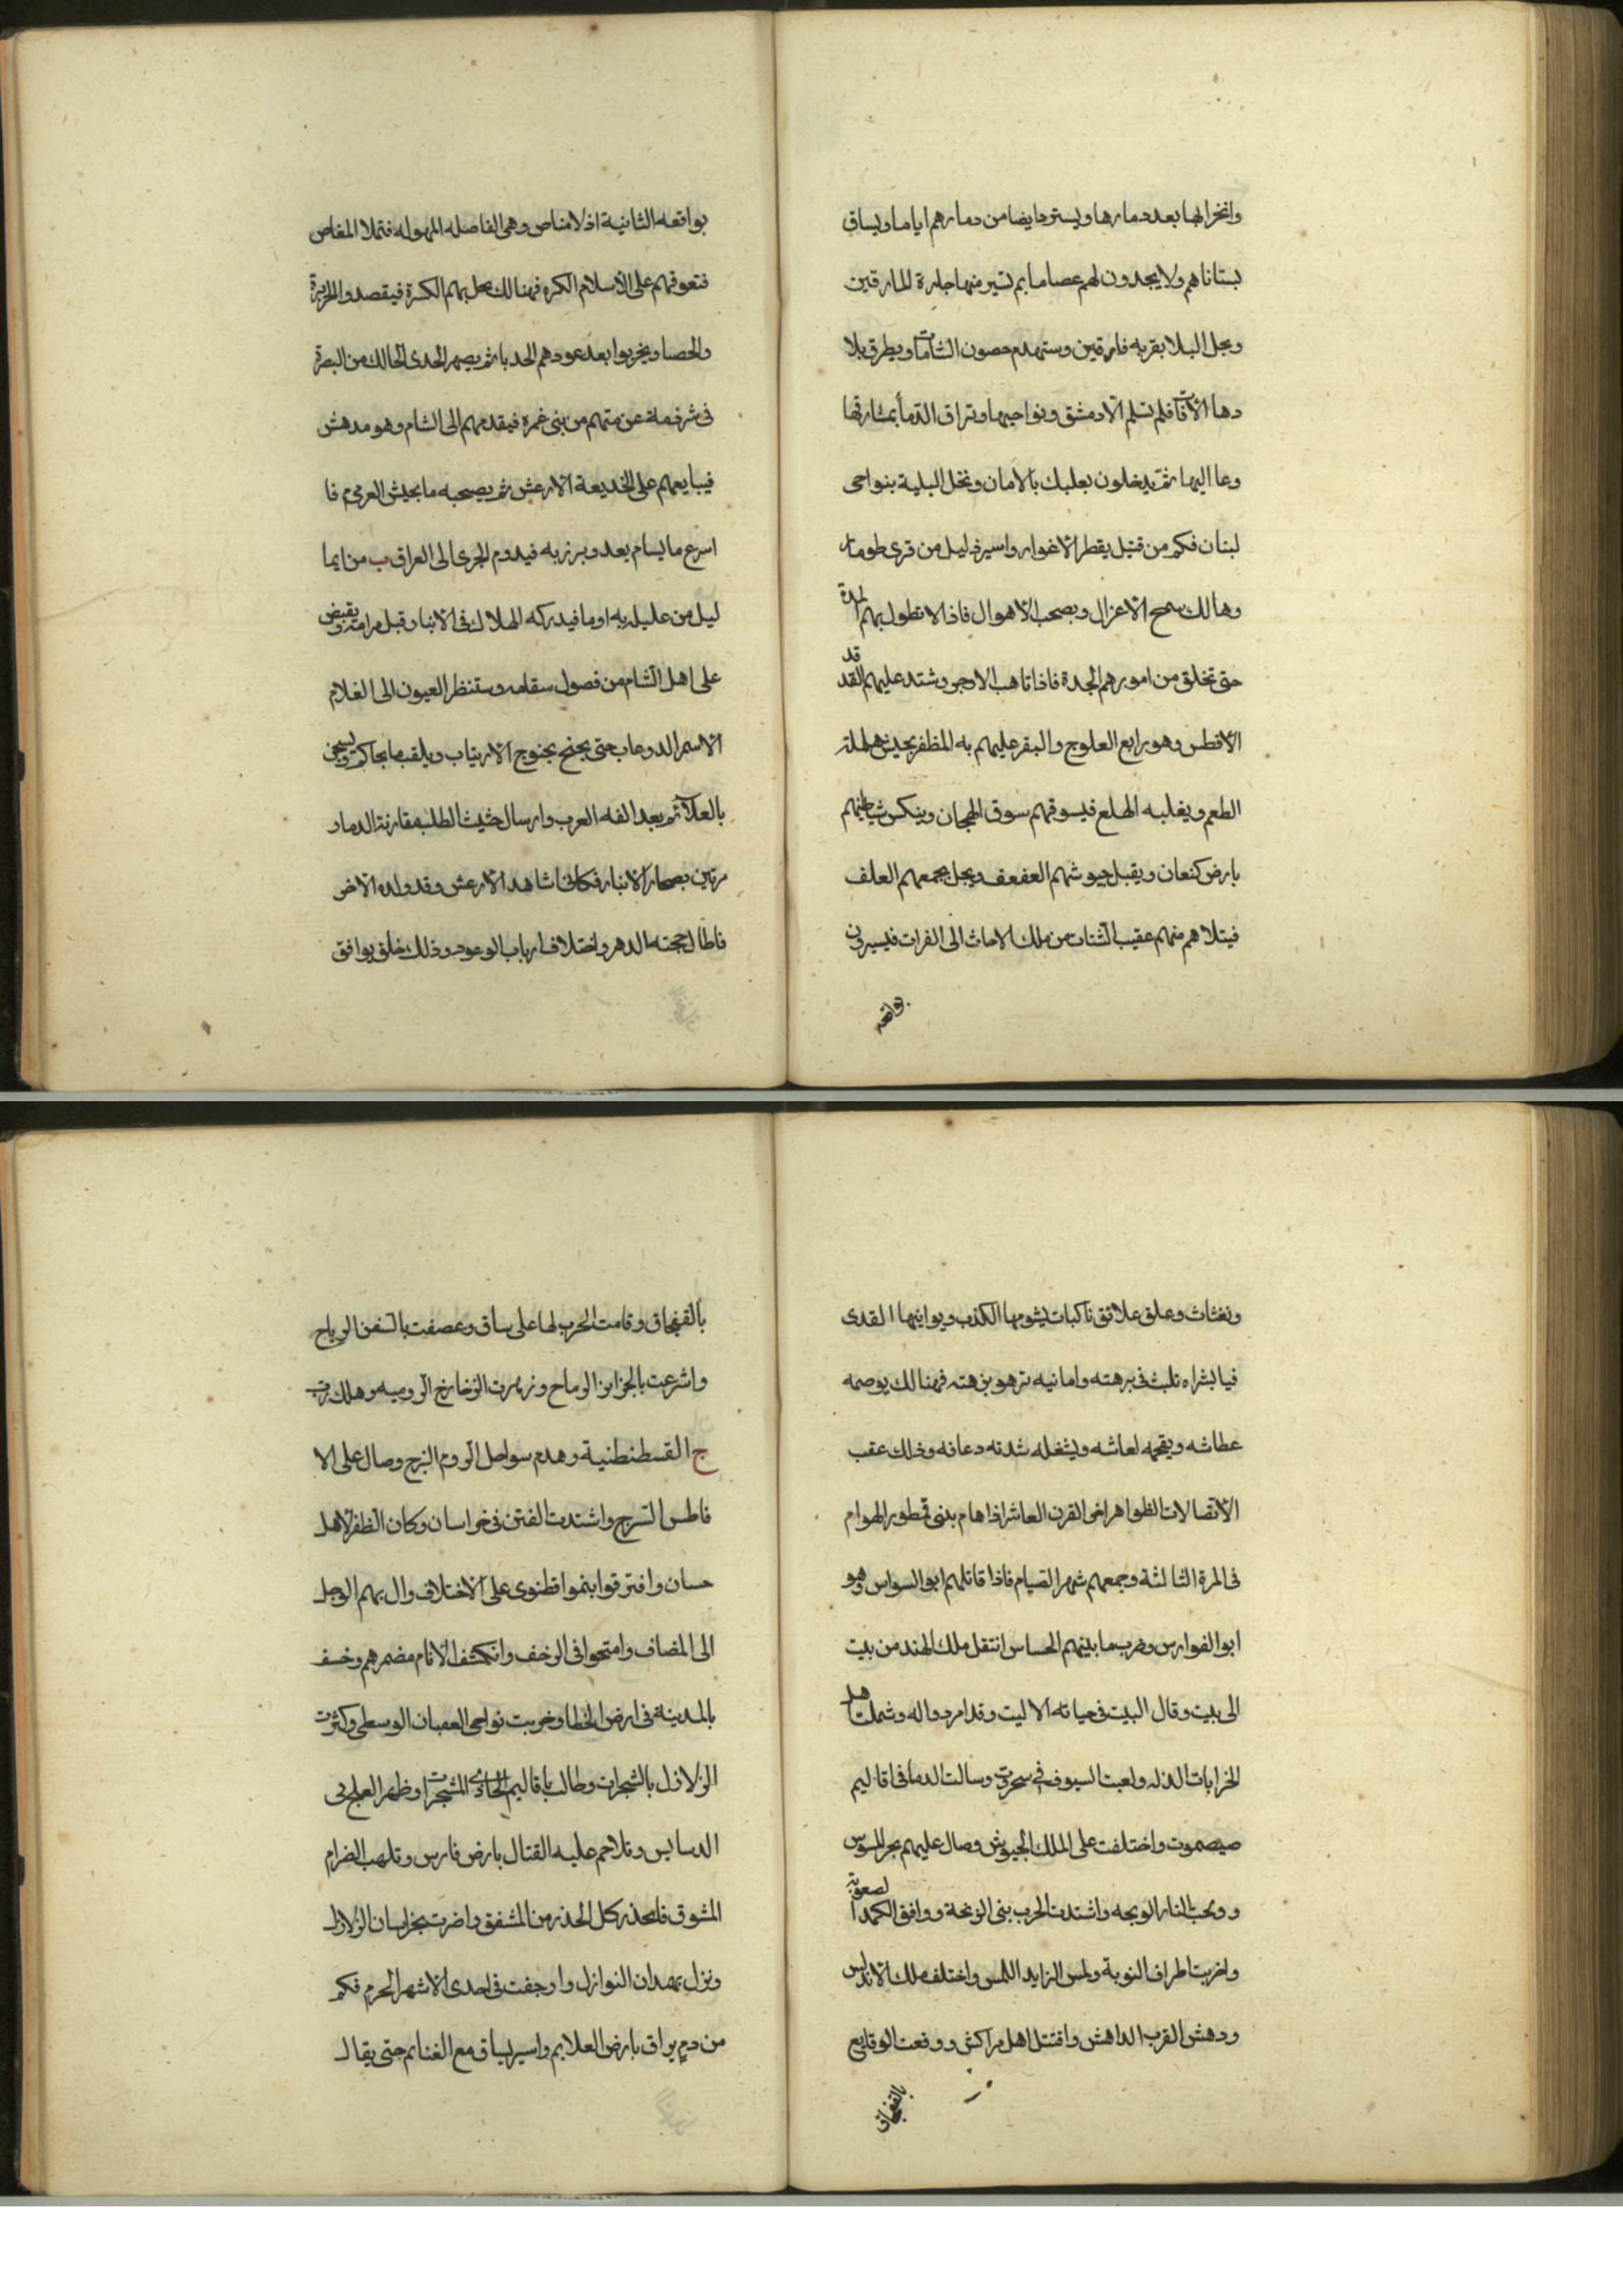 وانخرابها بعد دمارها ويستردفايضا من دمارهم اياما ويساق
بستاناهم ولا يجدون لهم عصاما بم تسير منها جلدة المارقين
ويحل البلا بقريه فارقين وستهدم حصون الشامات ويطرق بلا
دها الآفات فلم تسلم الا دمشق ونواحيها وتراق الدمأ بمشارقها
وعااليها ثم يدخلون بعلبك بالامان وتحل البلية بنواحى
لبنان فكم من قتيل بقطر الاغوار واسير ذليل من قرى طومار
وهالك الاعزال ويصحب الاهوال فاذا لا تطول بهم المدة
حتى تخلق من امورهم الجدة فاذا تاهب الاوجر وشتد عليهم القد قد
الافطس وهو رابع العلوج والبقر عليهم به المظفر بجيش
الطعم ويغلبه الهلع فيسوقهم سوق الهجان وينكس شياطينهم
بارض كنعان ويقبل جيوشهم العفعف ويحل بجمعهم العلف
فيتلاهم منهم عقيب الشتات من ملك الاحاث الى الفرات فيسيرون
بواقعه
بواقعه الثانية اذ لا مناص وهى الفاصله المهوله فتملا المغاص
فتعوقهم على الاسلام الكره فهنالك يحل بهم الكسرة فيقصدوا الجزيرة
والحصا ويخربوا بعد عودهم الحدبا ثم يصهر الجدى الحالك من البصرة
فى شرذمة عن متهم من بنى غمرة فيقدمهم الى الشام وهو مدهش
فيبايعهم على الخديعة الارعش ثم يصحبه ما بجيش العرمرم فا
اسرع ما يسام بعد وبرزبه فيدوم الجرى الى العراق ب من ايما
ليل من عليل به او ما فيدركه الهلاك فى الانبار قبل مرامه ويقبض
على اهل الشام من فصول سقامه وستنظر العيون الى الغلام
الاسمر الدوعاب حتى يجنح بجنوح الارتياب ويلقب ما بحاكم ويسجن
بالعلآئم بعد الفه العرب وارسال حثيث الطلب مقارنة الدمار
مرتين بصحار الانبار فكانى اشاهد الارعش وقد ولده الاخر
فاطال حجته الدهر واختلاف ارباب الوعود وذلك خلق يوافق
ونغثاث وعلق علائق ناكبات يشومها الكذب ويوانيها القدى
فيا بشراه تلبث فى برهته وامانيه تزهو بزهته فهنالك يوصمه
عطاشه ويقحمه لعاشه ويشغله شدته دعافه وذلك عقب
الاتصالات الظواهر اغى القرن العاشر اذا هام بدنى قمطور الهوام
فى المرة الثالثة وجمعهم شهر الصيام فاذا قاتلهم ابو السواس وهو
ابوا الفوارس وضرب ما بينهم الحساس انتقل ملك الهند من بيت
الى بيت وقال البيت فى حياته الا ليت وقد امر دواله وشملت اهل
الخرابات الذله ولعبت السيوف فى سحروت وسالت الدما فى اقاليم
صيصموت واختلفت على الملك الجيوش وصال عليهم بحر السوس
وونحت النار الوبحه واشتدت الحرب بنى الزنجة ووافق الكمد الصعوبة
واخربت اطراف النوبة ولمس الزايد اللمس واختلف ملك الاندلس
ودهش القرب الداهش واقتتل اهل مراكش ووقعت الوقايع
بالقفجاق
بالقفجاق وقامت الحرب لها على ساق وعصفت بالسفن الرياح
واشرعت بالجزاير الرماح وزمرت الزخازخ الروميه وهلك رب
ج القسطنطنية وهدم سواحل الروم البرج وصال على الا
فاطس السرج واشتدت الفتن فى خراسان وكان الظفر لاهل
حسان وافترقوا بنموا قطنوى على الاختلاف وال بهم الوجل
الى المضاف وامتحوا فى الزحف وانكشف الانام مضرهم وخسف
بالمدينة فى ارض الخطا وخربت نواحى العقبان الوسطى وكثرت
الزلازل بالشجرات وطالب باقاليم الحادى المشجرات وظهر العلج بى
الدسايس وتلاحم عليه القتال بارض فارس وتلهب الضرام
المشوق فليحذر كل الحذر من المشفق واضرت بخراسان الزلازل
ونزل بهمدان النوازل وارجفت فى احدى الاشهر الحرم فكم
من دم يراق بارض العلايم واسير يساق مع الغنايم حتى يقال